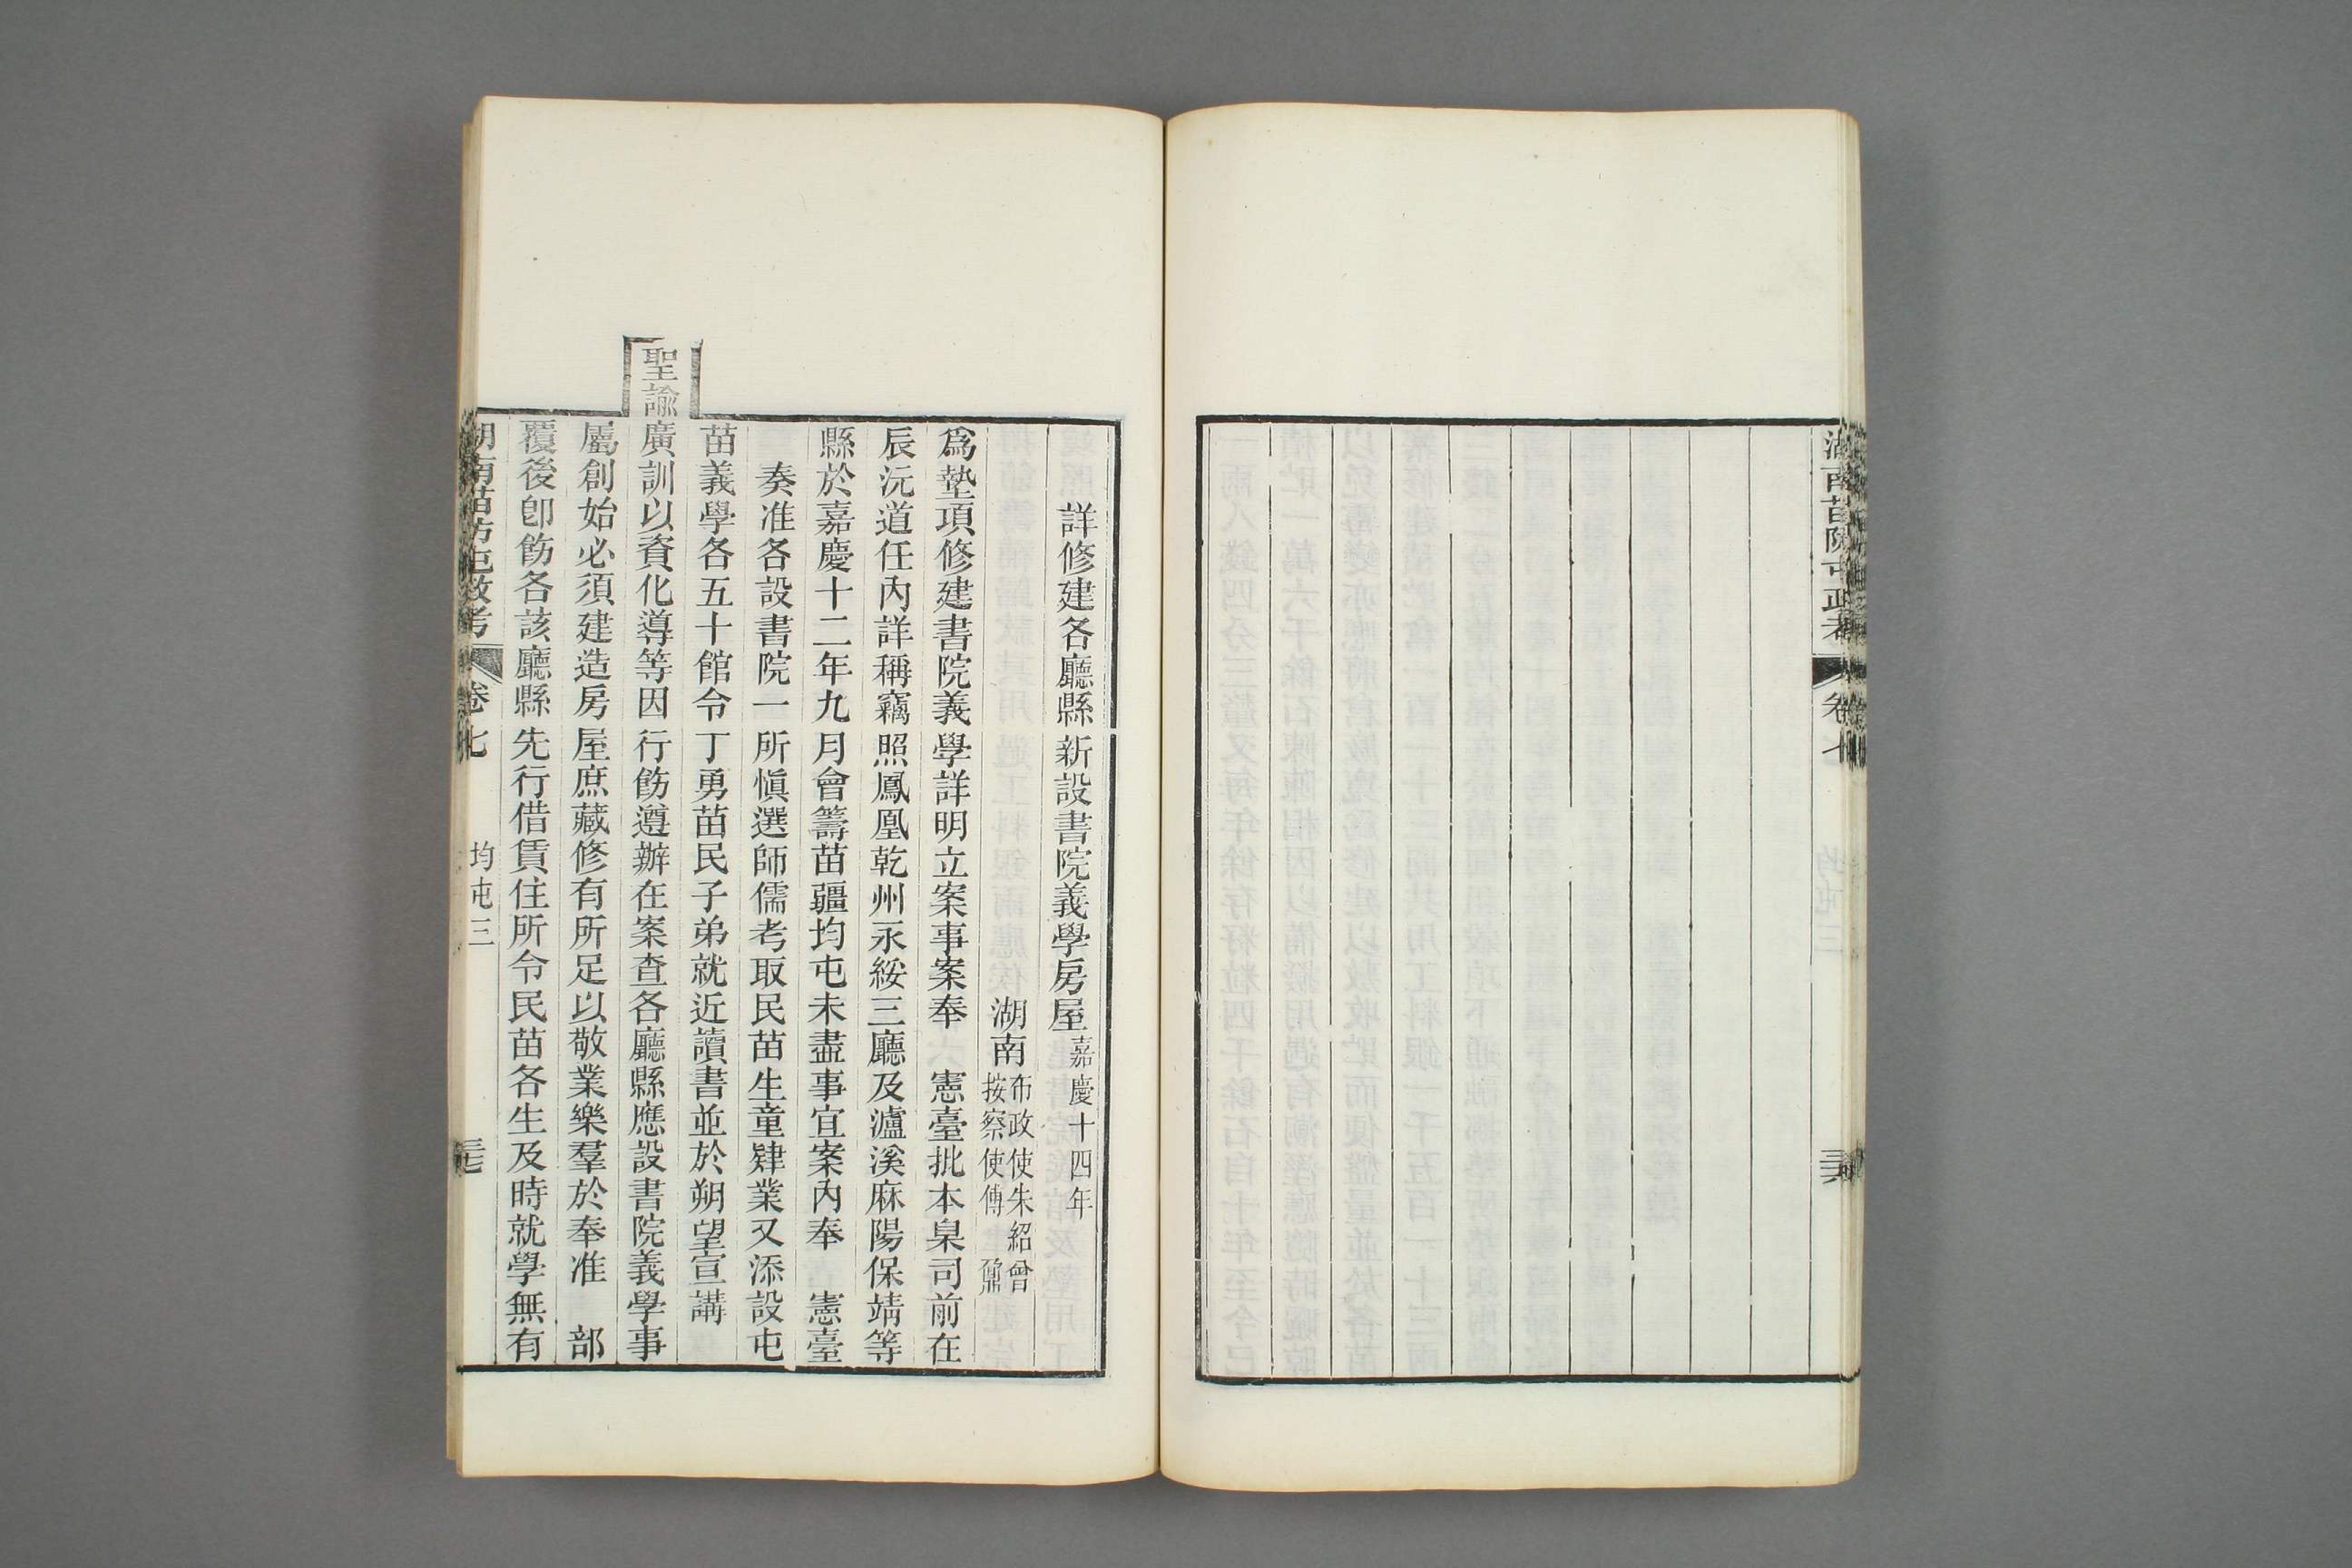 湖南苗防屯政考
卷七
三六
詳修建各廳縣新設書院義學房屋嘉慶十四年
湖南布政使朱紹曾
按察使傅鼐
爲墊項修建書院義學詳明立案事案奉　憲臺批本臬司前在
辰沅道任內詳稱竊照鳳凰乾州永綏三廳及瀘溪麻陽保靖等
縣於嘉慶十二年九月會籌苗疆均屯未盡事宜案內奉　憲臺
奏准各設書院一所愼選師儒考取民苗生童肄業又添設屯
苗義學各五十館令丁勇苗民子弟就近讀書並於朔望宣講
聖諭廣訓以資化導等因行飭遵辦在案查各廳縣應設書院義學事
屬創始必須建造房屋庶藏修有所足以敬業樂羣於奉准　部
覆後卽飭各該廳縣先行借賃住所令民苗各生及時就學無有
湖南苗防屯政考
卷七
均屯三
三七